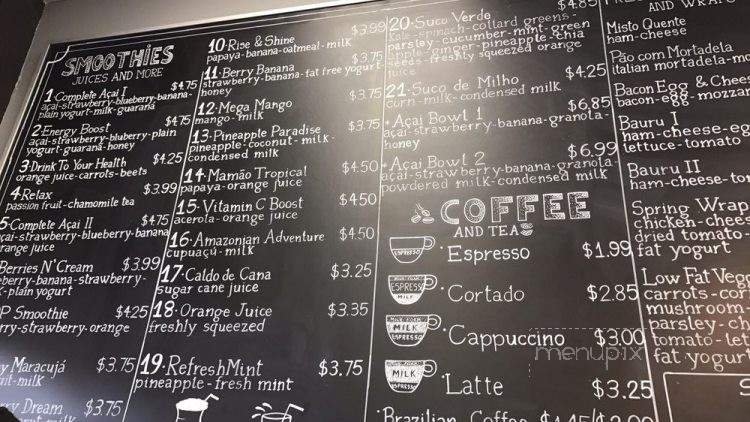 SMOOTHIES
JUICES AND MORE
1 Complete Açaí I $4.75
açaí-strawberry-blueberry-banana-
plain yogurt-milk-guarana
2 Energy Boost $4.75
açaí-strawberry-bluberry-plain
yogurt-guarana-honey
3 Drink To Your Health $4.25
orange juice-carrots-beets
4 Relax $3.99
passion fruit-chamomile tea
5 Complete Açaí II $4.75
açaí-strawberry-blueberry-banana
orange juice
Berries N'Cream $3.99
-plain yogurt
P Smoothie $4.25
-strawberry-orange
Maracujá $3.75
-milk
Dream $3.75
$3.99
10 Rise & Shine
papaya-banana-oatmeal-milk
11 Berry Banana $3.75
strawberry-banana-fat free yogurt
honey
12 Mega Mango $3.75
mango-milk
13 Pineapple Paradise $3.75
pineapple-coconut-milk-
condensed milk
14 Mamão Tropical $4.50
papaya-orange juice
15 Vitamin C Boost $4.50
acerola-orange juice
16 Amazonian Adventure $4.50
cupuaçu-milk
17 Caldo de Cana $3.25
sugar cane juice
18 Orange Juice $3.35
freshly squeezed
19 RefreshMint $3.75
pineapple-fresh mint
20 Suco Verde $4.85
Kale-spinach-collard greens-
parsley-cucumber-mint-green
apple-ginger-pineapple-chia
seeds-freshly squeezed orange
juice
21 Suco de Milho $4.25
corn-milk-condensed milk
Açaí Bowl 1 $6.85
açaí-strawberry-banana-granola-
honey
Açaí Bowl 2 $6.99
açaí-strawberry-banana-granola-
powdered milk-condensed milk
COFFEE
AND TEAS
ESPRESSO
Espresso $1.99
ESPRESSO
MILK
Cortado $2.85
MILK FOAM
MILK
ESPRESSO
Cappuccino $3.00
MILK
ESPRESSO
Latte $3.25
Brazilian Coffee $1.45/$2.00
AND WRAPS
Misto Quente
ham-cheese
Pão com Mortadela
italian mortadela-mo
Bacon Egg & Chee
bacon-egg-mozzar
Bauru I
ham-cheese-eg
lettuce-tomato
Bauru II
ham-cheese-to
Spring Wrap
chicken-chee
dried tomato-
fat yogurt
Low Fat Veg
carrots-cor
mushroom
parsley-ch
tomato-let
fat yogurt
menupix